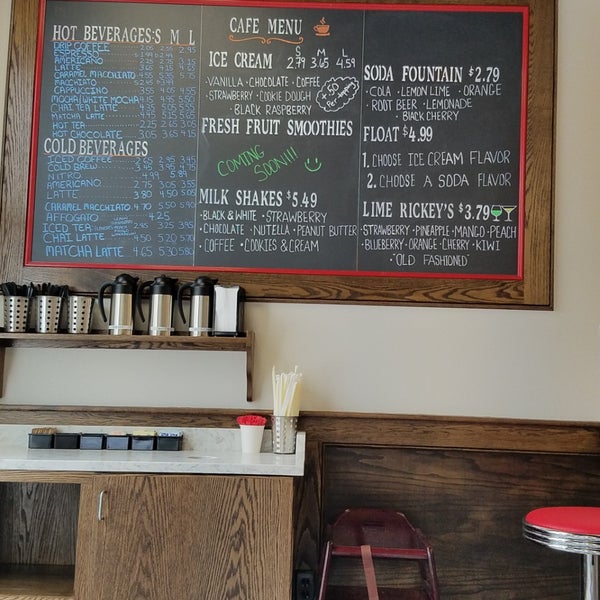 CAFE MENU
HOT BEVERAGES: S M L
DRIP COFFEE 2.95
ESPRESSO
AMERICANO
LATTE
CARAMEL MACCHIATO
MACCHIATO
CAPPUCCINO 3.55 4.05 4.55
MOCHA/WHITE MOCHA
CHAI TEA LATTE
MATCHA LATTE
HOT TEA 2.25 2.65 3.05
HOT CHOCOLATE 3.05 3.65 4.15
COLD BEVERAGES
ICED COFFEE 3.45
COLD BREW
NITRO 4.99
AMERICANO 2.75 3.05 3.55
LATTE 3.80 4.50 5.05
CARAMEL MACCHIATO 4.70 5.50 5.90
AFFOGATO 4.25
ICED TEA
CHAI LATTE 4.50 5.20 5.70
MATCHA LATTE 4.65 5.30 5.80
ICE CREAM S 2.79 M 3.65 L 4.59
VANILLA • CHOCOLATE • COFFEE
STRAWBERRY • COOKIE DOUGH
BLACK RASPBERRY
.50
FRESH FRUIT SMOOTHIES
COMING
SOON!!!!
MILK SHAKES $5.49
BLACK & WHITE • STRAWBERRY
CHOCOLATE • NUTELLA • PEANUT BUTTER
COFFEE • COOKIES & CREAM
SODA FOUNTAIN $2.79
COLA • LEMON LIME • ORANGE
ROOT BEER • LEMONADE
BLACK CHERRY
FLOAT $4.99
1. CHOOSE ICE CREAM FLAVOR
2. CHOOSE A SODA FLAVOR
LIME RICKEY'S $3.79
STRAWBERRY • PINEAPPLE • MANGO • PEACH
BLUEBERRY • ORANGE • CHERRY • KIWI
• "OLD FASHIONED"